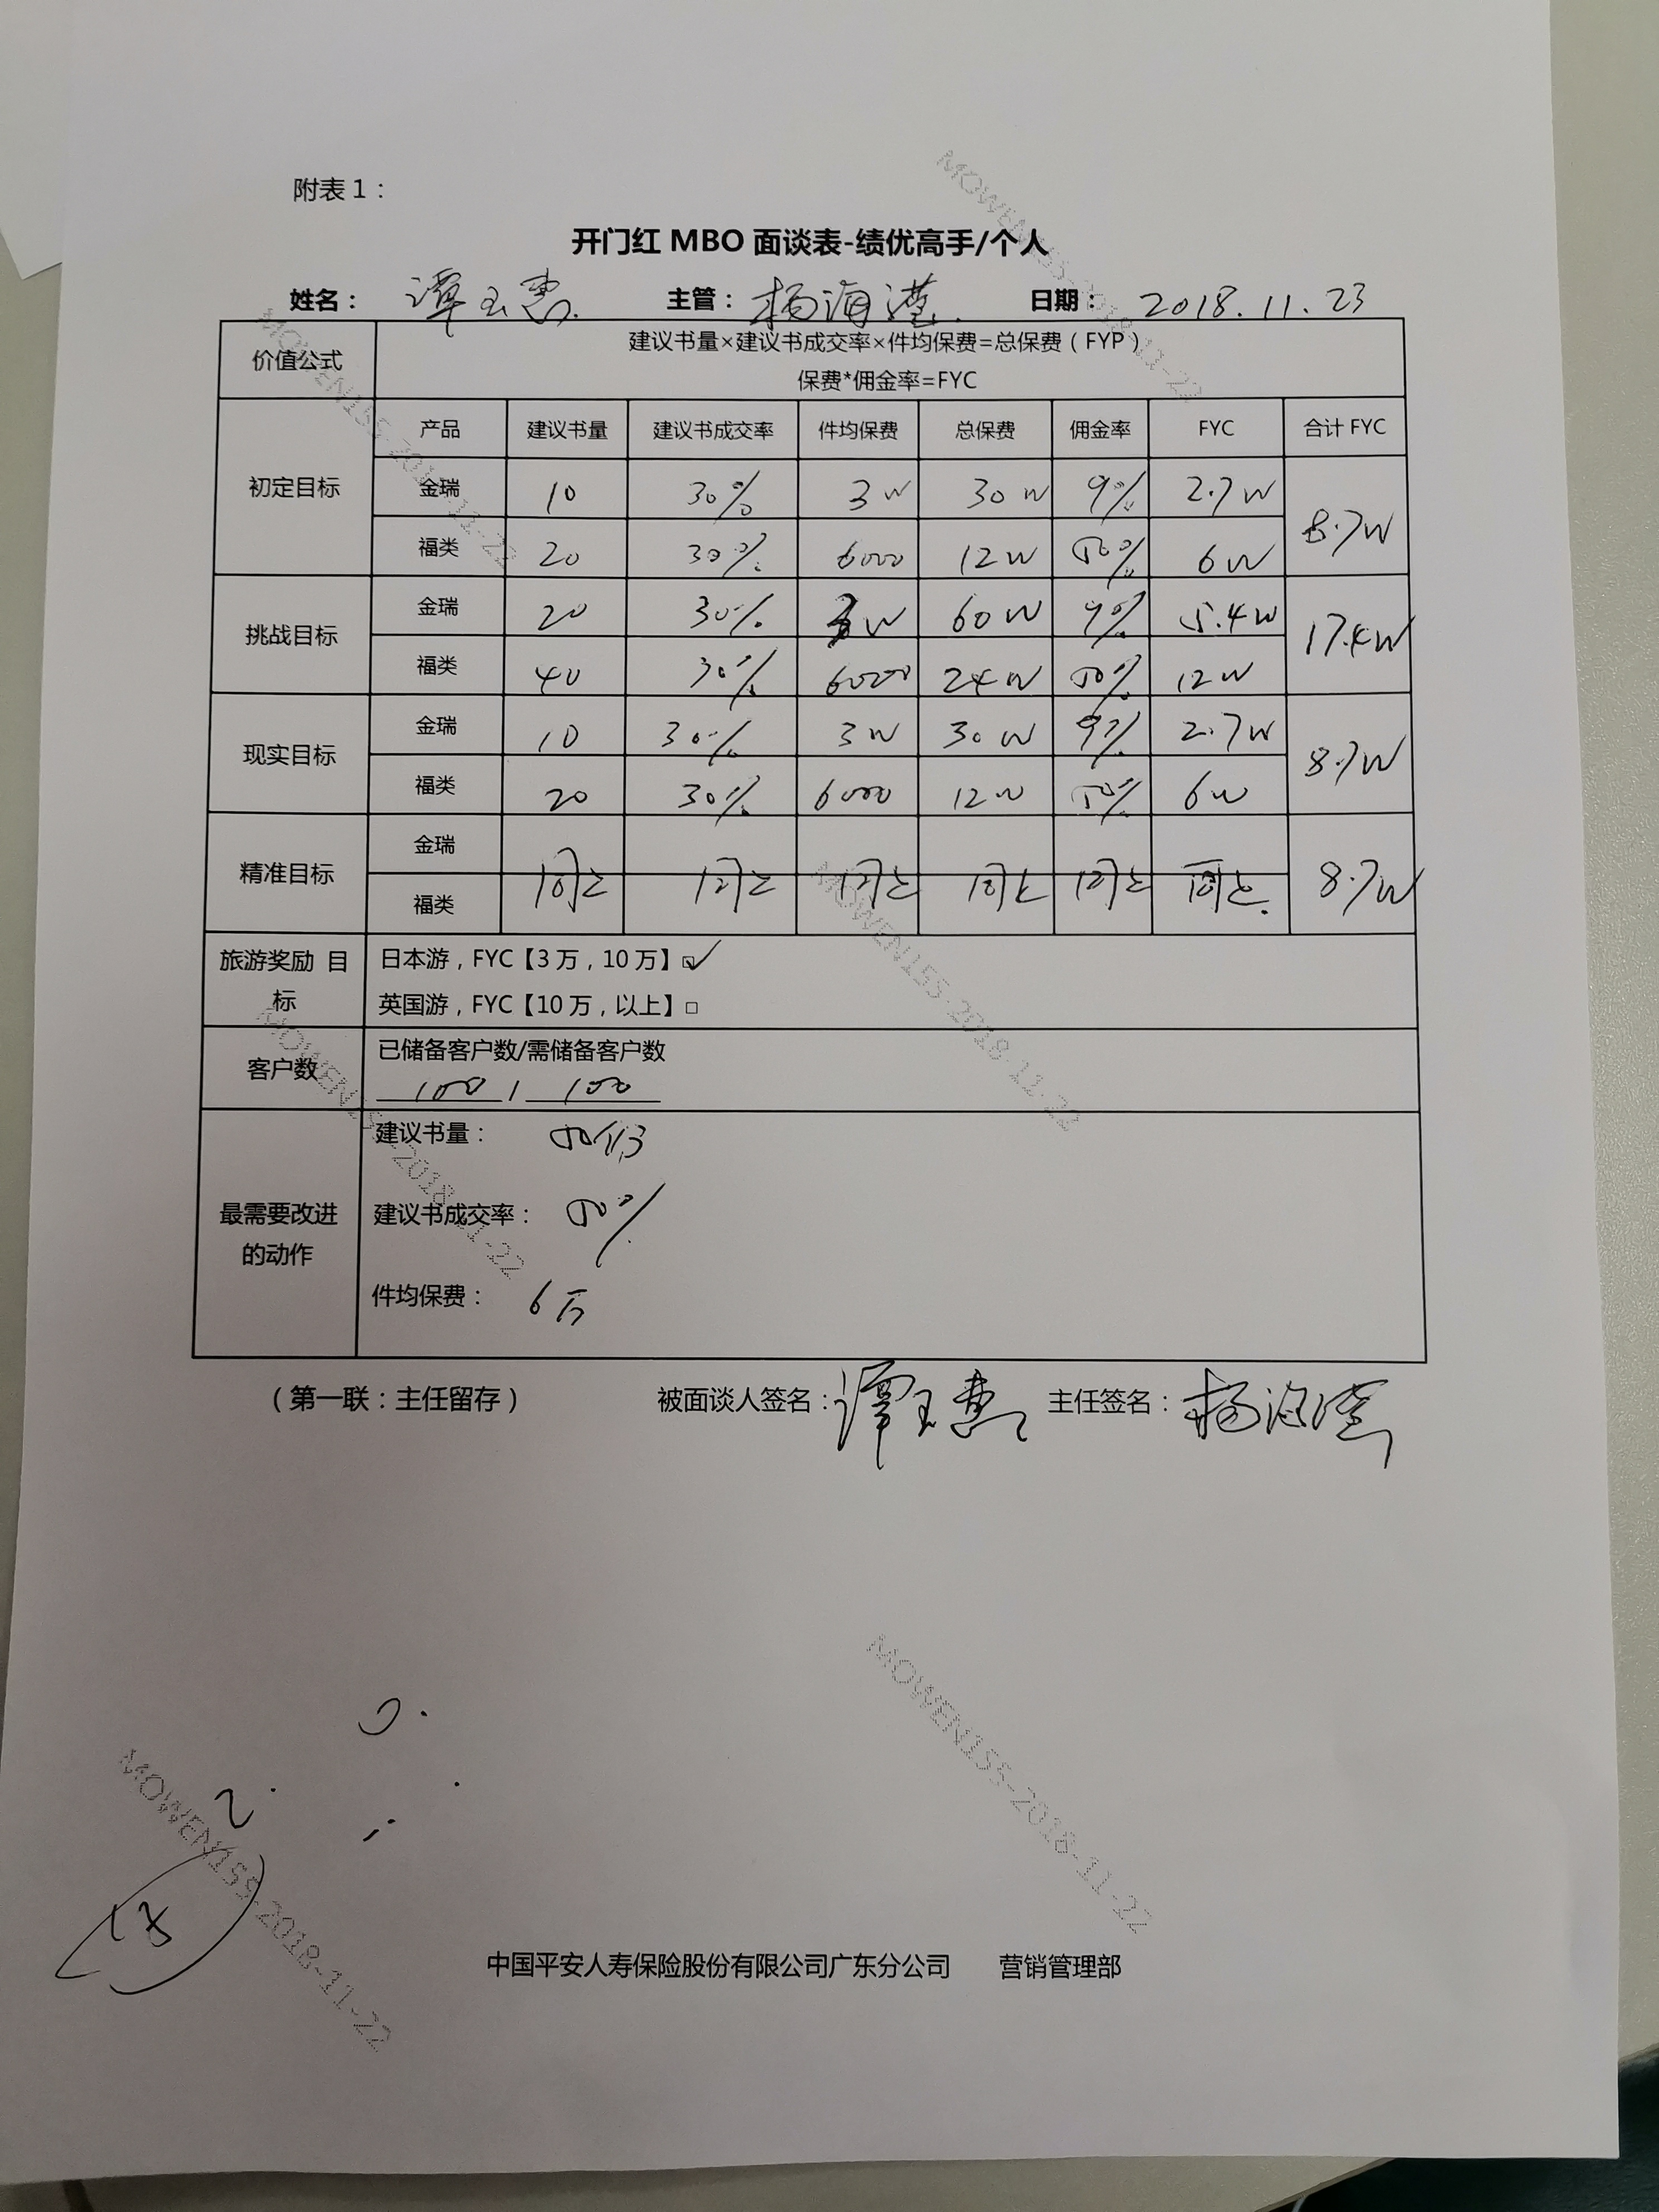 附表1：
开门红 MBO 面谈表-绩优高手/个人
姓名： 谭玉惠 主管： 杨海滢 日期： 2018.11.23
价值公式 建议书量×建议书成交率×件均保费=总保费（FYP）
保费*佣金率=FYC
产品 建议书量 建议书成交率 件均保费 总保费 佣金率 FYC 合计 FYC
初定目标 金瑞 10 30% 3W 30W 9% 2.7W 8.7W
福类 20 30% 6000 12W 50% 6W
挑战目标 金瑞 20 30% 3W 60W 9% 5.4W 17.4W
福类 40 30% 6000 24W 50% 12W
现实目标 金瑞 10 30% 3W 30W 9% 2.7W 8.7W
福类 20 30% 6000 12W 50% 6W
精准目标 金瑞 同上 同上 同上 同上 同上 同上 8.7W
福类
旅游奖励 目标 日本游，FYC【3万，10万】☑
英国游，FYC【10万，以上】□
客户数 已储备客户数/需储备客户数
100 / 100
最需要改进的动作 建议书量： 50份
建议书成交率： 50%
件均保费： 6万
（第一联：主任留存） 被面谈人签名：谭玉惠 主任签名：杨海滢
2.
中国平安人寿保险股份有限公司广东分公司 营销管理部
MOWEN155-2018-11-22
MOWEN155-2018-11-22
MOWEN155-2018-11-22
MOWEN155-2018-11-22
MOWEN155-2018-11-22
MOWEN155-2018-11-22